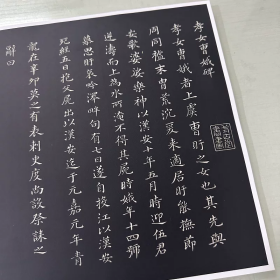 孝女曹娥碑
孝女曹娥者上虞曹盱之女也其先與
周同祖末胄荒沉爰来適居盱能撫節
安歌婆娑樂神以漢安二年五月時迎伍君
逆濤而上為水所淹不得其屍時娥年十四號
慕思盱哀吟澤畔旬有七日遂自投江
死經五日抱父屍出以漢安迄于元嘉元年青
龍在辛卯莫之有表度尚設祭誄之
辭曰